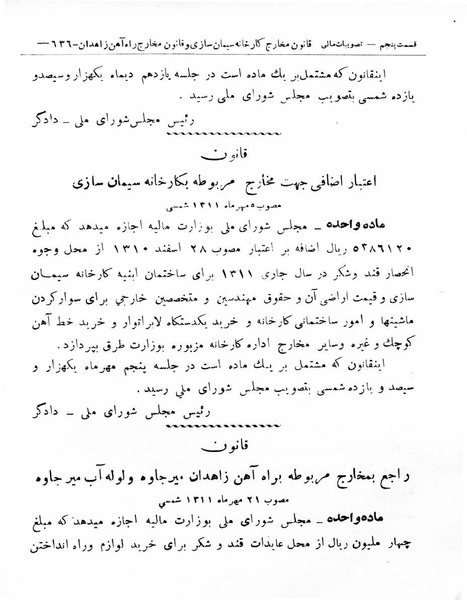 قسمت پنجم — تصویبات مالی قانون مخارج کارخانه سیمان سازی و قانون مخارج راه آهن زاهدان -۶۳۶—
اینقانون که مشتمل بر یك ماده است در جلسه یازدهم دیماه یکهزار و سیصد و
یازده شمسی بتصویب مجلس شورای ملی رسید .
رئیس مجلس شورای ملی ـ دادگر
قانون
اعتبار اضافی جهت مخارج مربوطه بکارخانه سیمان سازی
مصوب ۵ مهر ماه ۱۳۱۱ شمسی
ماده واحده ـ مجلس شورای ملی بوزارت مالیه اجازه میدهد که مبلغ
۵۲۸۶۱۲۰ ریال اضافه بر اعتبار مصوب ۲۸ اسفند ۱۳۱۰ از محل وجوه
انحصار قند وشکر در سال جاری ۱۳۱۱ برای ساختمان ابنیه کارخانه سیمان
سازی و قیمت اراضی آن و حقوق مهندسین و متخصصین خارجی برای سوار کردن
ماشینها و امور ساختمانی کارخانه و خرید یکدستگاه لابراتوار و خرید خط آهن
کوچك و غیره وسایر مخارج اداره کارخانه مزبوره بوزارت طرق بپردازد .
اینقانون که مشتمل بر یك ماده است در جلسه پنجم مهرماه یکهزار و
سیصد و یازده شمسی بتصویب مجلس شورای ملی رسید .
رئیس مجلس شورای ملی ـ دادگر
قانون
راجع بمخارج مربوطه براه آهن زاهدان میرجاوه و لوله آب میرجاوه
مصوب ۲۱ مهر ماه ۱۳۱۱ شمسی
ماده واحده ـ مجلس شورای ملی بوزارت مالیه اجازه میدهد که مبلغ
چهار ملیون ریال از محل عایدات قند و شکر برای خرید لوازم وراه انداختن